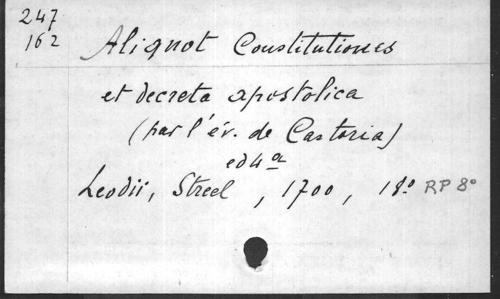 247
162
Aliquot Constitutiones
et decreta apostolica
(par l'év. de Castoria)
ed 4a
Leodii, Streel, 1700, 18o RP 8o